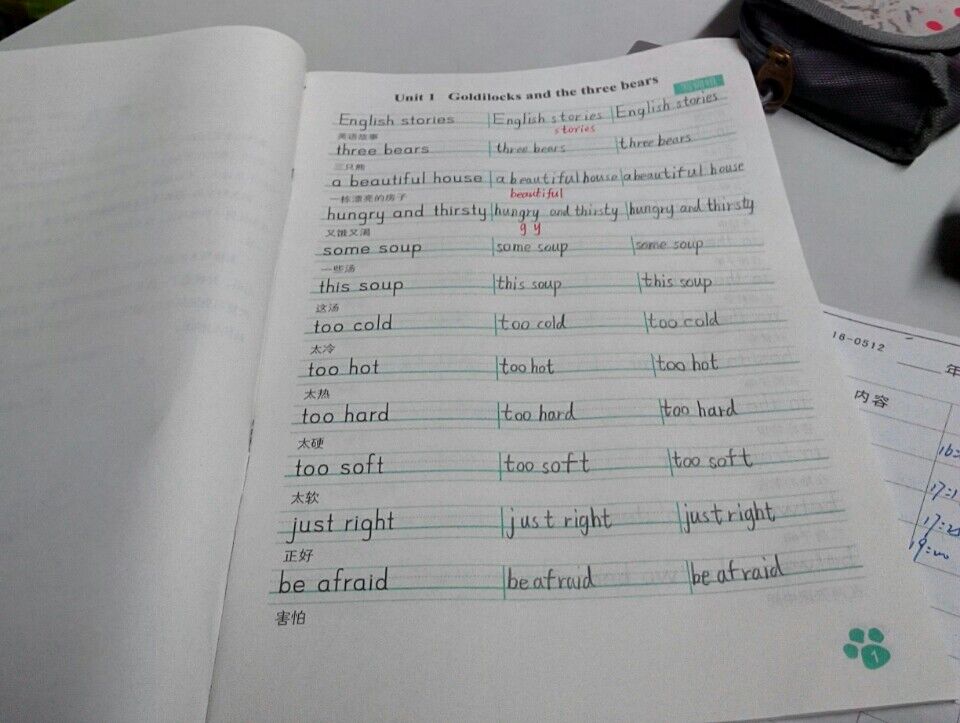 Unit 1 Goldilocks and the three bears
English stories English stories English stories
英语故事 stories
three bears three bears three bears
三只熊
a beautiful house a beautiful house a beautiful house
一栋漂亮的房子 beautiful
hungry and thirsty hungry and thirsty hungry and thirsty
又饿又渴 g y
some soup some soup some soup
一些汤
this soup this soup this soup
这汤
too cold too cold too cold
太冷
too hot too hot too hot
太热
too hard too hard too hard
太硬
too soft too soft too soft
太软
just right just right just right
正好
be afraid be afraid be afraid
害怕
1
16-0512
年
内容
17:1
17:25
19:00